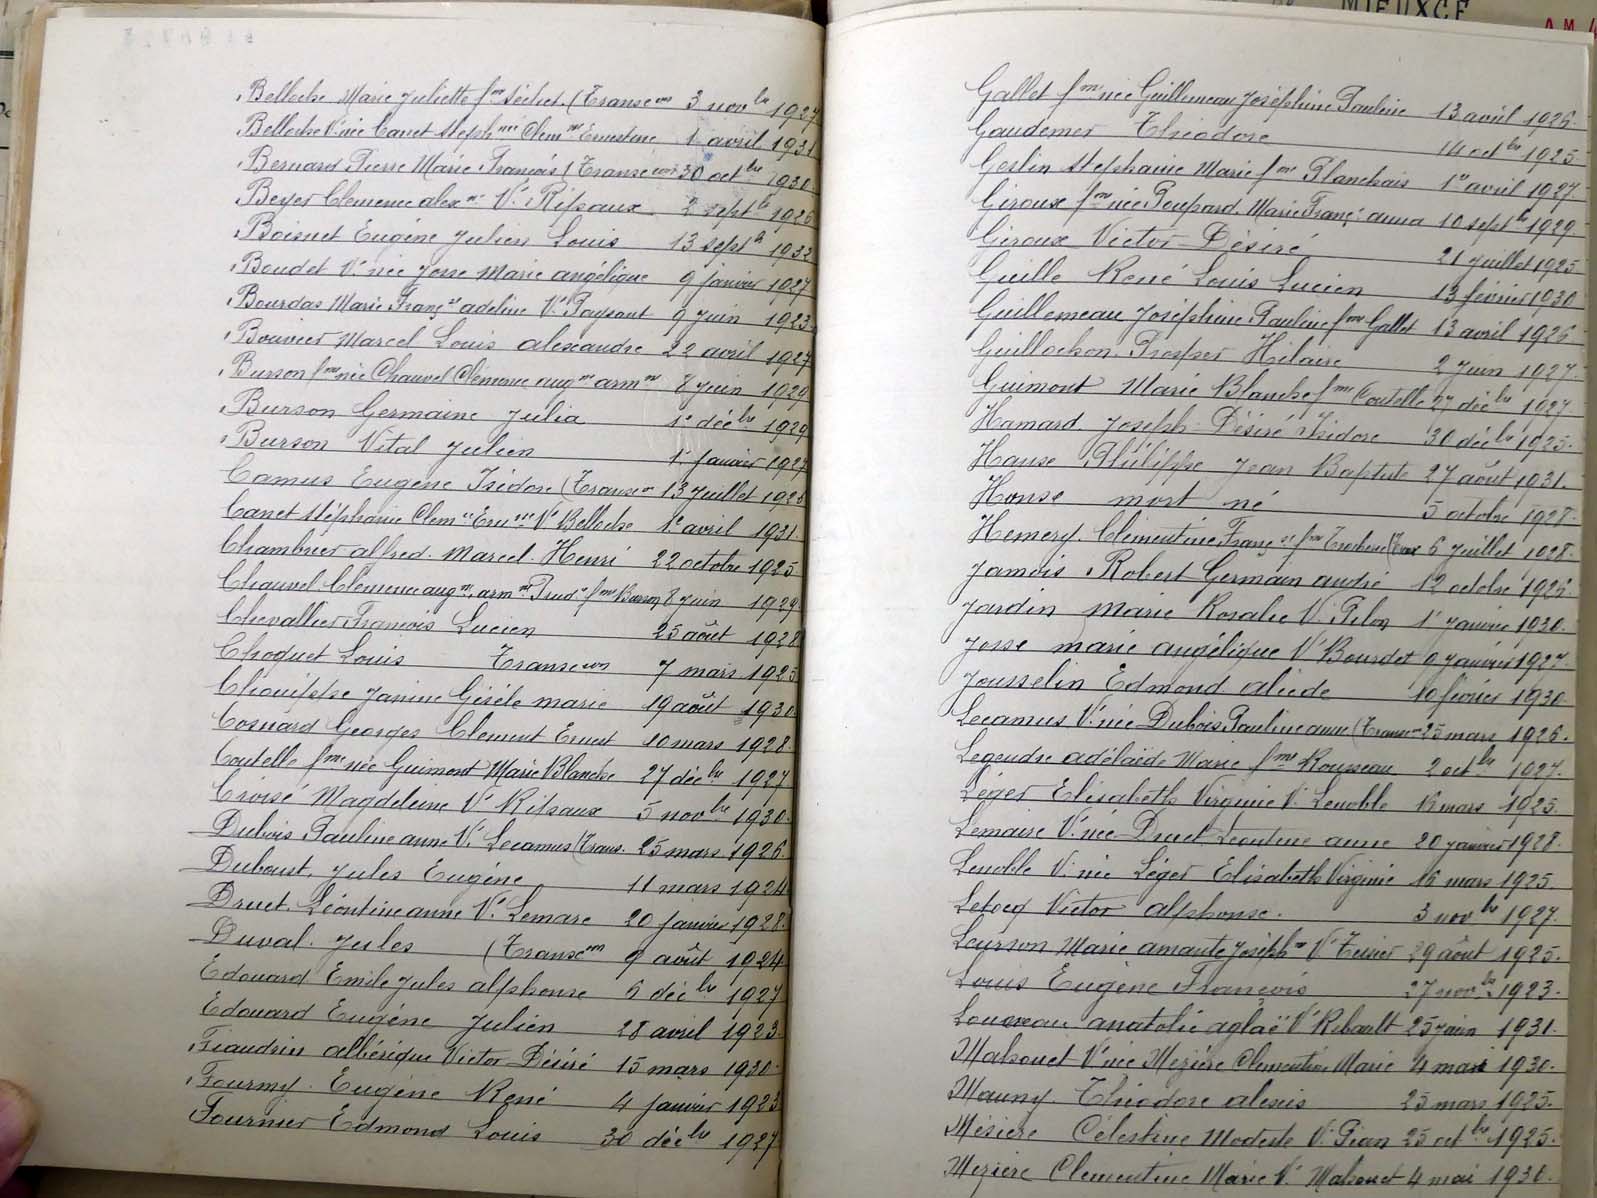 MIEUXCE
A M
Belloche Marie Juliette fme Séchet (Transcon 3 novbre 1927
Belloche Vve née Canet Stéphnie Clemce Ernestine 1 avril 1931
Bernard Pierre Marie François (Transcon 30 octbre 1930
Beyer Clemence alexne Ve Ripaux 2 septbre 1926
Boisnet Eugène Julien Louis 13 septbre 1932
Boudet Ve née Josse Marie angélique 9 janvier 1927
Bourdas Marie Françse adeline Ve Paysant 9 juin 1923
Bouvier Marcel Louis alexandre 22 avril 1927
Burson fme née Chauvel Clémence augne armne 8 juin 1929
Burson Germaine Julia 1e décbre 1929
Burson Vital Julien 1e janvier 1927
Camus Eugène Isidore (Transcon 13 juillet 1926
Canet Stéphanie Clemce Erne Ve Belloche 1e avril 1931
Chambrier alfred Marcel Henri 22 octobre 1925
Chauvel Clemence augne armne Prud fme Burson 8 juin 1929
Chevallier François Lucien 25 août 1928
Choquet Louis Transcon 7 mars 1925
Chouippe Janine Gisèle marie 19 août 1930
Cosnard Georges Clement Ernest 10 mars 1928
Coutelle fme née Guimont Marie Blanche 27 décbre 1927
Croisé Magdeleine Ve Ripaux 5 novbre 1930
Dubois Pauline anne Ve Lecamus (Trans. 25 mars 1926
Duboust Jules Eugène 11 mars 1924
Druet Léontine anne Ve Lemare 20 janvier 1928
Duval Jules (Transcon 9 août 1924
Edouard Emile Jules alphonse 6 décbre 1927
Edouard Eugène Julien 28 avril 1923
Fiaudrin albérique Victor Désiré 15 mars 1930
Fourmy Eugène René 4 janvier 1923
Fournier Edmond Louis 30 décbre 1927
Gallet fme née Guillemeau Joséphine Pauline 13 avril 1926
Gaudemer Théodore 14 octbre 1925
Geslin Stéphanie Marie fme Planchais 1er avril 1927
Giroux fme née Poupard Marie Franç anna 10 septbre 1929
Giroux Victor Désiré 21 juillet 1925
Guille René Louis Lucien 13 février 1930
Guillemeau Joséphine Pauline fme Gallet 13 avril 1926
Guillochon Prosper Hilaire 2 juin 1927
Guimont Marie Blanche fme Coutelle 27 décbre 1927
Hamard Joseph Désiré Isidore 30 décbre 1925
Hause Philippe Jean Baptiste 27 août 1931
Honse mort né 5 octobre 1928
Hemery Clémentine Françse fme (Trans 6 juillet 1928
Jamois Robert Germain andré 12 octobre 1926
Jardin Marie Rosalie Ve Pilon 1e janvier 1930
Josse marie angélique Ve Bourdet 9 janvier 1927
Jousselin Edmond alcide 10 février 1930
Lecamus Ve née Dubois Pauline anne (Transcon 25 mars 1926
Legendre adélaïde Marie fme Rousseau 2 octbre 1927
Léger Elisabeth Virginie Ve Lenoble 16 mars 1925
Lemaire Ve née Druet Léontine anne 20 janvier 1928
Lenoble Ve née Léger Elisabeth Virginie 16 mars 1925
Letocq Victor alphonse 3 novbre 1927
Leurson Marie amante Joséphne Ve Tessier 29 août 1925
Louis Eugène François 27 novbre 1923
Louveau anatolie aglaë Ve Ribault 25 juin 1931
Malsouet Ve née Mezière Clementine Marie 4 mai 1930
Mauny Théodore alexis 23 mars 1925
Mésière Célestine Modeste Ve Pian 25 octbre 1925
Mezière Clementine Marie Ve Malsouet 4 mai 1930